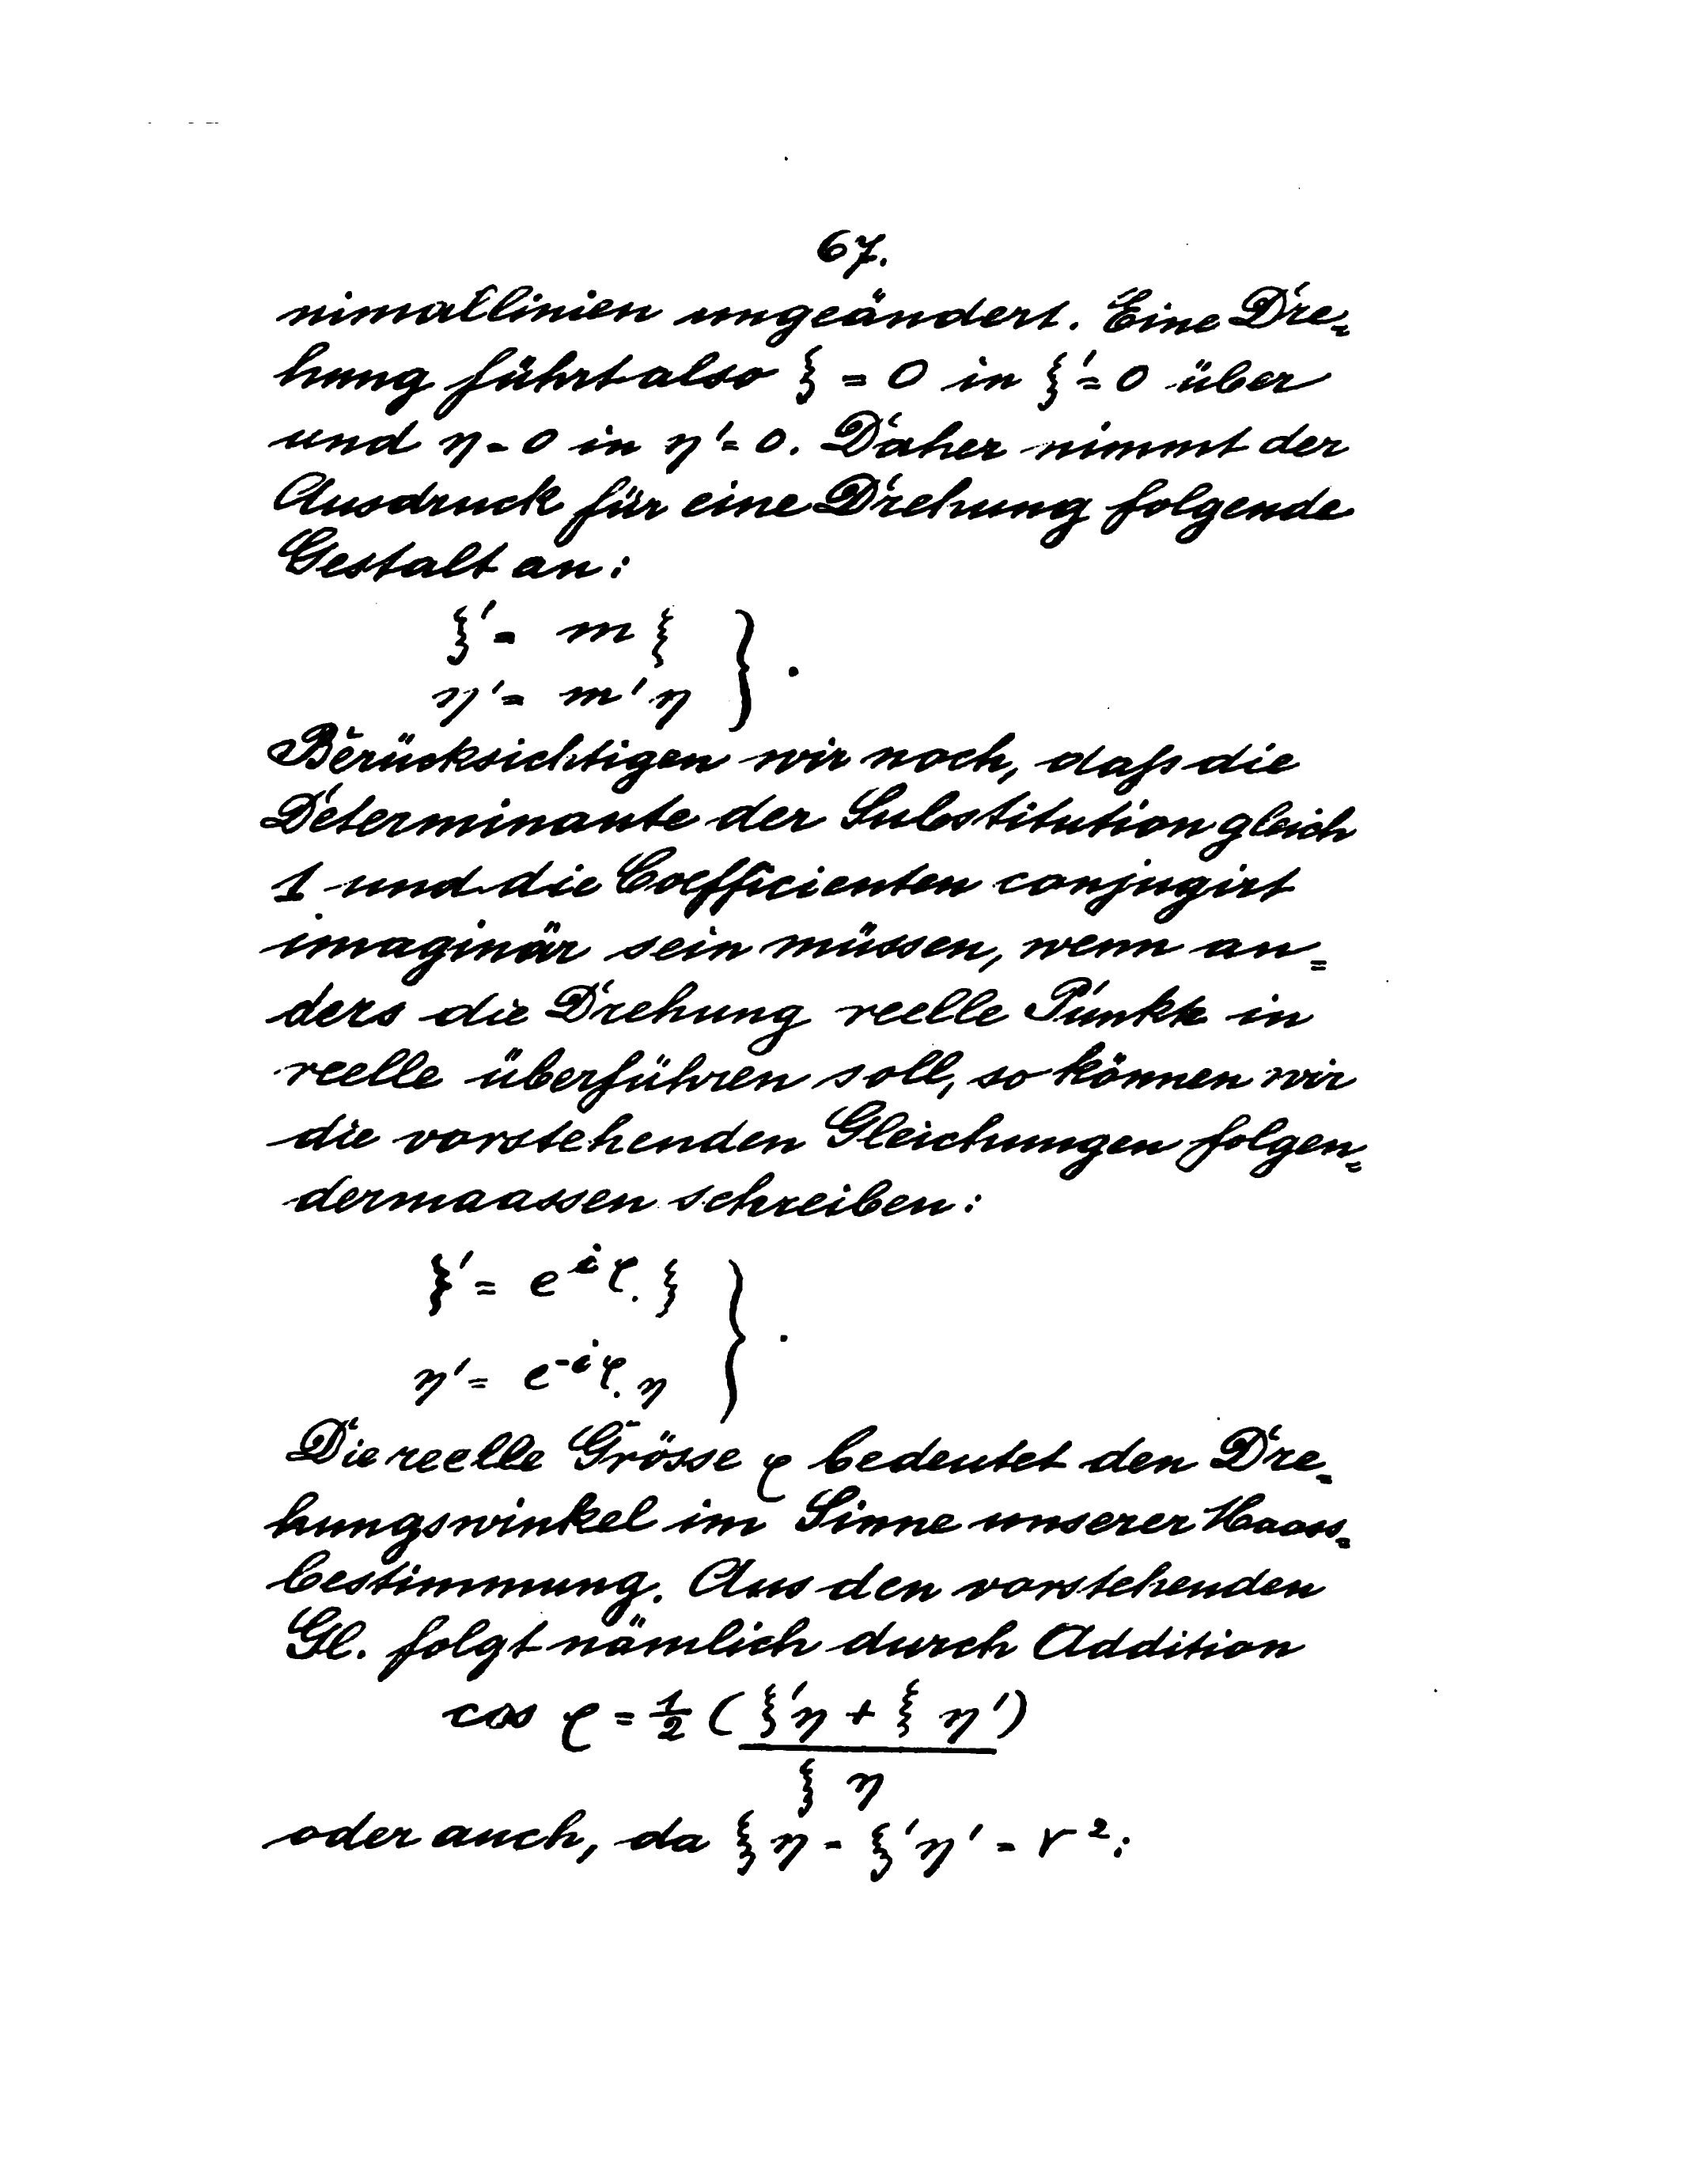 67.
nimallinien ungeändert. Eine Dre=
hung führt also ξ = 0 in ξ' = 0 über
und η = 0 in η' = 0. Daher nimmt der
Ausdruck für eine Drehung folgende
Gestalt an:
ξ' = m ξ
η' = m' η } .
Berücksichtigen wir noch, daß die
Determinante der Substitution gleich
1 und die Coefficienten conjugirt
imaginär sein müssen, wenn an=
ders die Drehung reelle Punkte in
reelle überführen soll, so können wir
die vorstehenden Gleichungen folgen=
dermaassen schreiben:
ξ' = e^{iφ}. ξ
η' = e^{-iφ}. η } .
Die reelle Grösse φ bedeutet den Dre=
hungswinkel im Sinne unserer Maass=
bestimmung. Aus den vorstehenden
Gl. folgt nämlich durch Addition
cos φ = ½ (ξ'η + ξ η')
ξ η
oder auch, da ξ η = ξ'η' = r²: